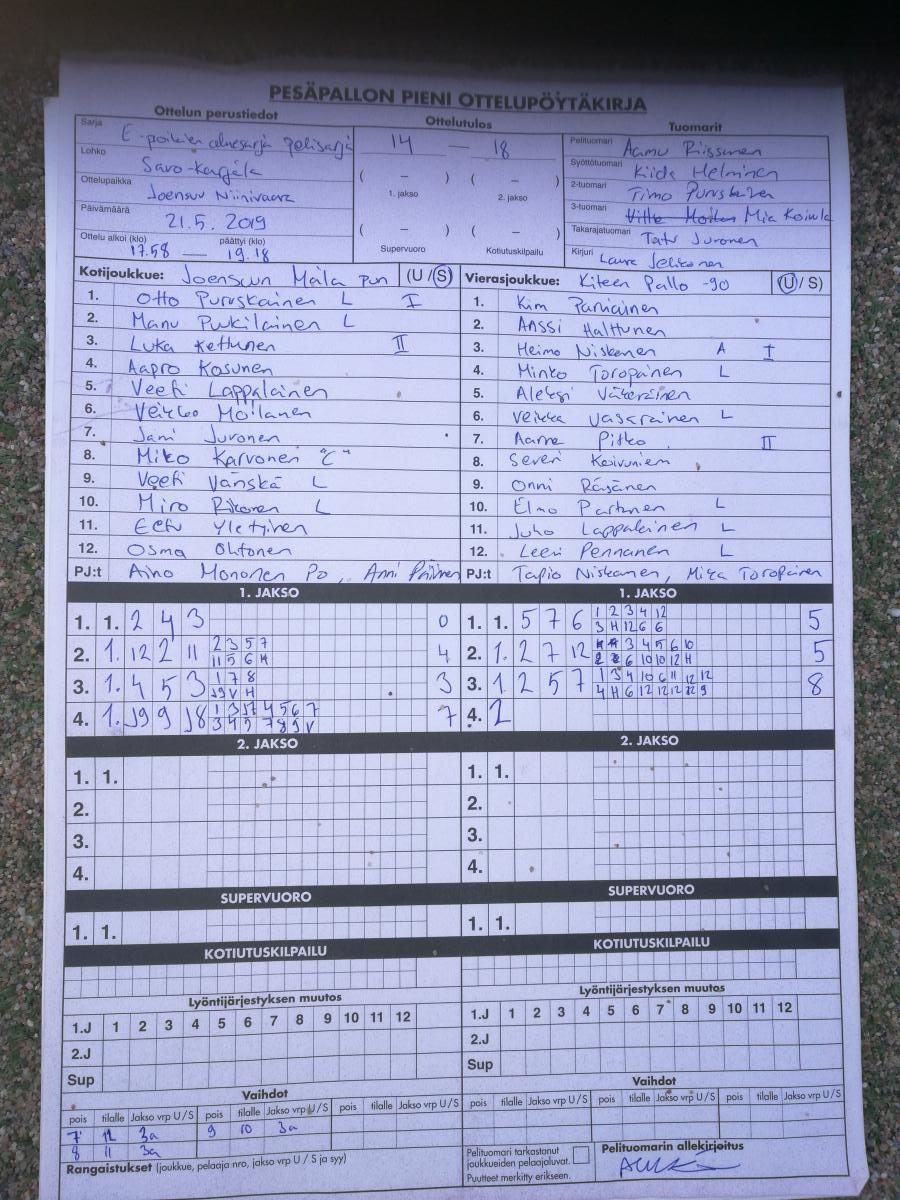 PESÄPALLON PIENI OTTELUPÖYTÄKIRJA
Ottelun perustiedot Ottelutulos Tuomarit
Sarja E-poikien aluesarja pelisarja
Lohko Savo-Karjala
Ottelupaikka Joensuu Niinivaara
Päivämäärä 21.5. 2019
Ottelu alkoi (klo) päättyi (klo)
17.58 — 19.18
14 — 18
( – ) ( – )
1. jakso 2. jakso
( – ) ( – )
Supervuoro Kotiutuskilpailu
Pelituomari Aamu Riissanen
Syöttötuomari Kiida Helminen
2-tuomari Timo Puruskainen
3-tuomari Mia Koivula
Takarajatuomari Tatu Juronen
Kirjuri Laura
Kotijoukkue: Joensuun Maila pun (U/S)
1. Otto Puruskainen L I
2. Manu Puikilainen L
3. Luka Kettunen II
4. Aapro Kosunen
5. Veeti Lappalainen
6. Veikko Moilanen
7. Jani Juronen
8. Miko Karvonen "C"
9. Veeti Vänskä L
10. Miro Rikonen L
11. Eetu Yletyinen
12. Osma Ohtonen
PJ:t Aino Mononen Po, Anni
Vierasjoukkue: Kiteen Pallo -90 (U/S)
1. Kim Parviainen
2. Anssi Halttunen
3. Heimo Niskanen A I
4. Minko Toropainen L
5. Aleksi Väkeväinen
6. Veikka Vasarainen L
7. Aarne Pitko II
8. Severi Koivuniemi
9. Onni Räsänen
10. Elmo Partanen L
11. Juho Lappalainen L
12. Leevi Pennanen L
PJ:t Tapio Niskanen, Mika Toropainen
1. JAKSO
1. 1. 2 4 3 0
2. 1. 12 2 11 2 3 5 7 4
11 5 6 H
3. 1. 4 5 3 1 7 8 3
J9 V H
4. 1. J9 9 J8 7
1. JAKSO
1. 1. 5 7 6 1 2 3 4 12 5
3 H 12 6 6
2. 1. 2 7 12 3 4 5 6 10 5
6 10 10 12 H
3. 1 2 5 7 1 3 4 10 6 11 12 12 8
4 H 6 12 12 12 9
4. 2
2. JAKSO
1. 1.
2.
3.
4.
2. JAKSO
1. 1.
2.
3.
4.
SUPERVUORO
1. 1.
SUPERVUORO
1. 1.
KOTIUTUSKILPAILU
KOTIUTUSKILPAILU
Lyöntijärjestyksen muutos
1.J 1 2 3 4 5 6 7 8 9 10 11 12
2.J
Sup
Lyöntijärjestyksen muutos
1.J 1 2 3 4 5 6 7 8 9 10 11 12
2.J
Sup
Vaihdot
pois tilalle Jakso vrp U/S pois tilalle Jakso vrp U/S pois tilalle Jakso vrp U/S
7 12 3a 9 10 3a
8 11 3a
Vaihdot
pois tilalle Jakso vrp U/S pois tilalle Jakso vrp U/S pois tilalle Jakso vrp U/S
Rangaistukset (joukkue, pelaaja nro, jakso vrp U / S ja syy)
Pelituomari tarkastanut
joukkueiden pelaajaluvat.
Puutteet merkitty erikseen.
Pelituomarin allekirjoitus